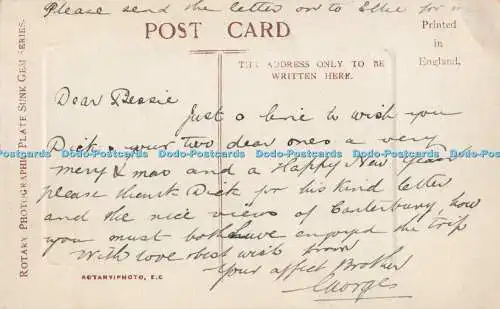 Please send the letter on to Ellie for me
POST CARD
Printed
in
England.
THE ADDRESS ONLY TO BE
WRITTEN HERE.
ROTARY PHOTOGRAPHIC PLATE SUNK GEM SERIES.
Dear Bessie
Just a line to wish you
Dick & your two dear ones a very
merry Xmas and a Happy New Year
please thank Dick for his kind letter
and the nice views of Canterbury, how
you must both have enjoyed the trip
With love & best wish from
Your affect Brother
George
ROTARY PHOTO, E.C.
Dodo-Postcards Dodo-Postcards Dodo-Postcards Dodo-Postcards Dodo-Postcards Dodo-Postcards